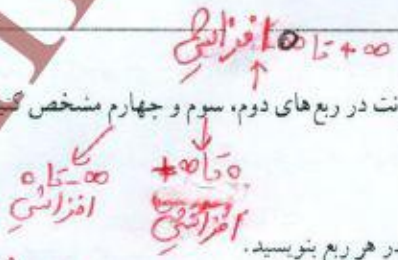 ∞+ تا ۰ افزایشی
انت در ربع‌های دوم، سوم و چهارم مشخص کنید
∞- تا ۰
افزایشی
۰ تا ∞+
افزایشی
در هر ربع بنویسید.